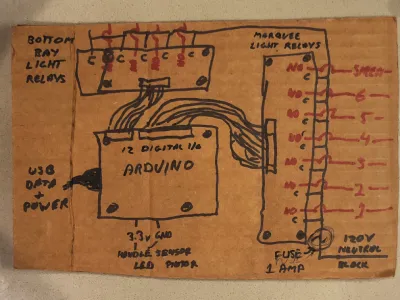 BOTTOM
BAY
LIGHT
RELAYS
C
C
C
C
MARQUEE
LIGHT RELAYS
NO
C
NO
C
6
NO
C
5
NO
C
4
NO
C
3
NO
C
2
NO
C
1
12 DIGITAL I/O
ARDUINO
USB
DATA
+
POWER
3.3V GND
LED MOTOR
FUSE
1 AMP
120V
NEUTRAL
BLOCK